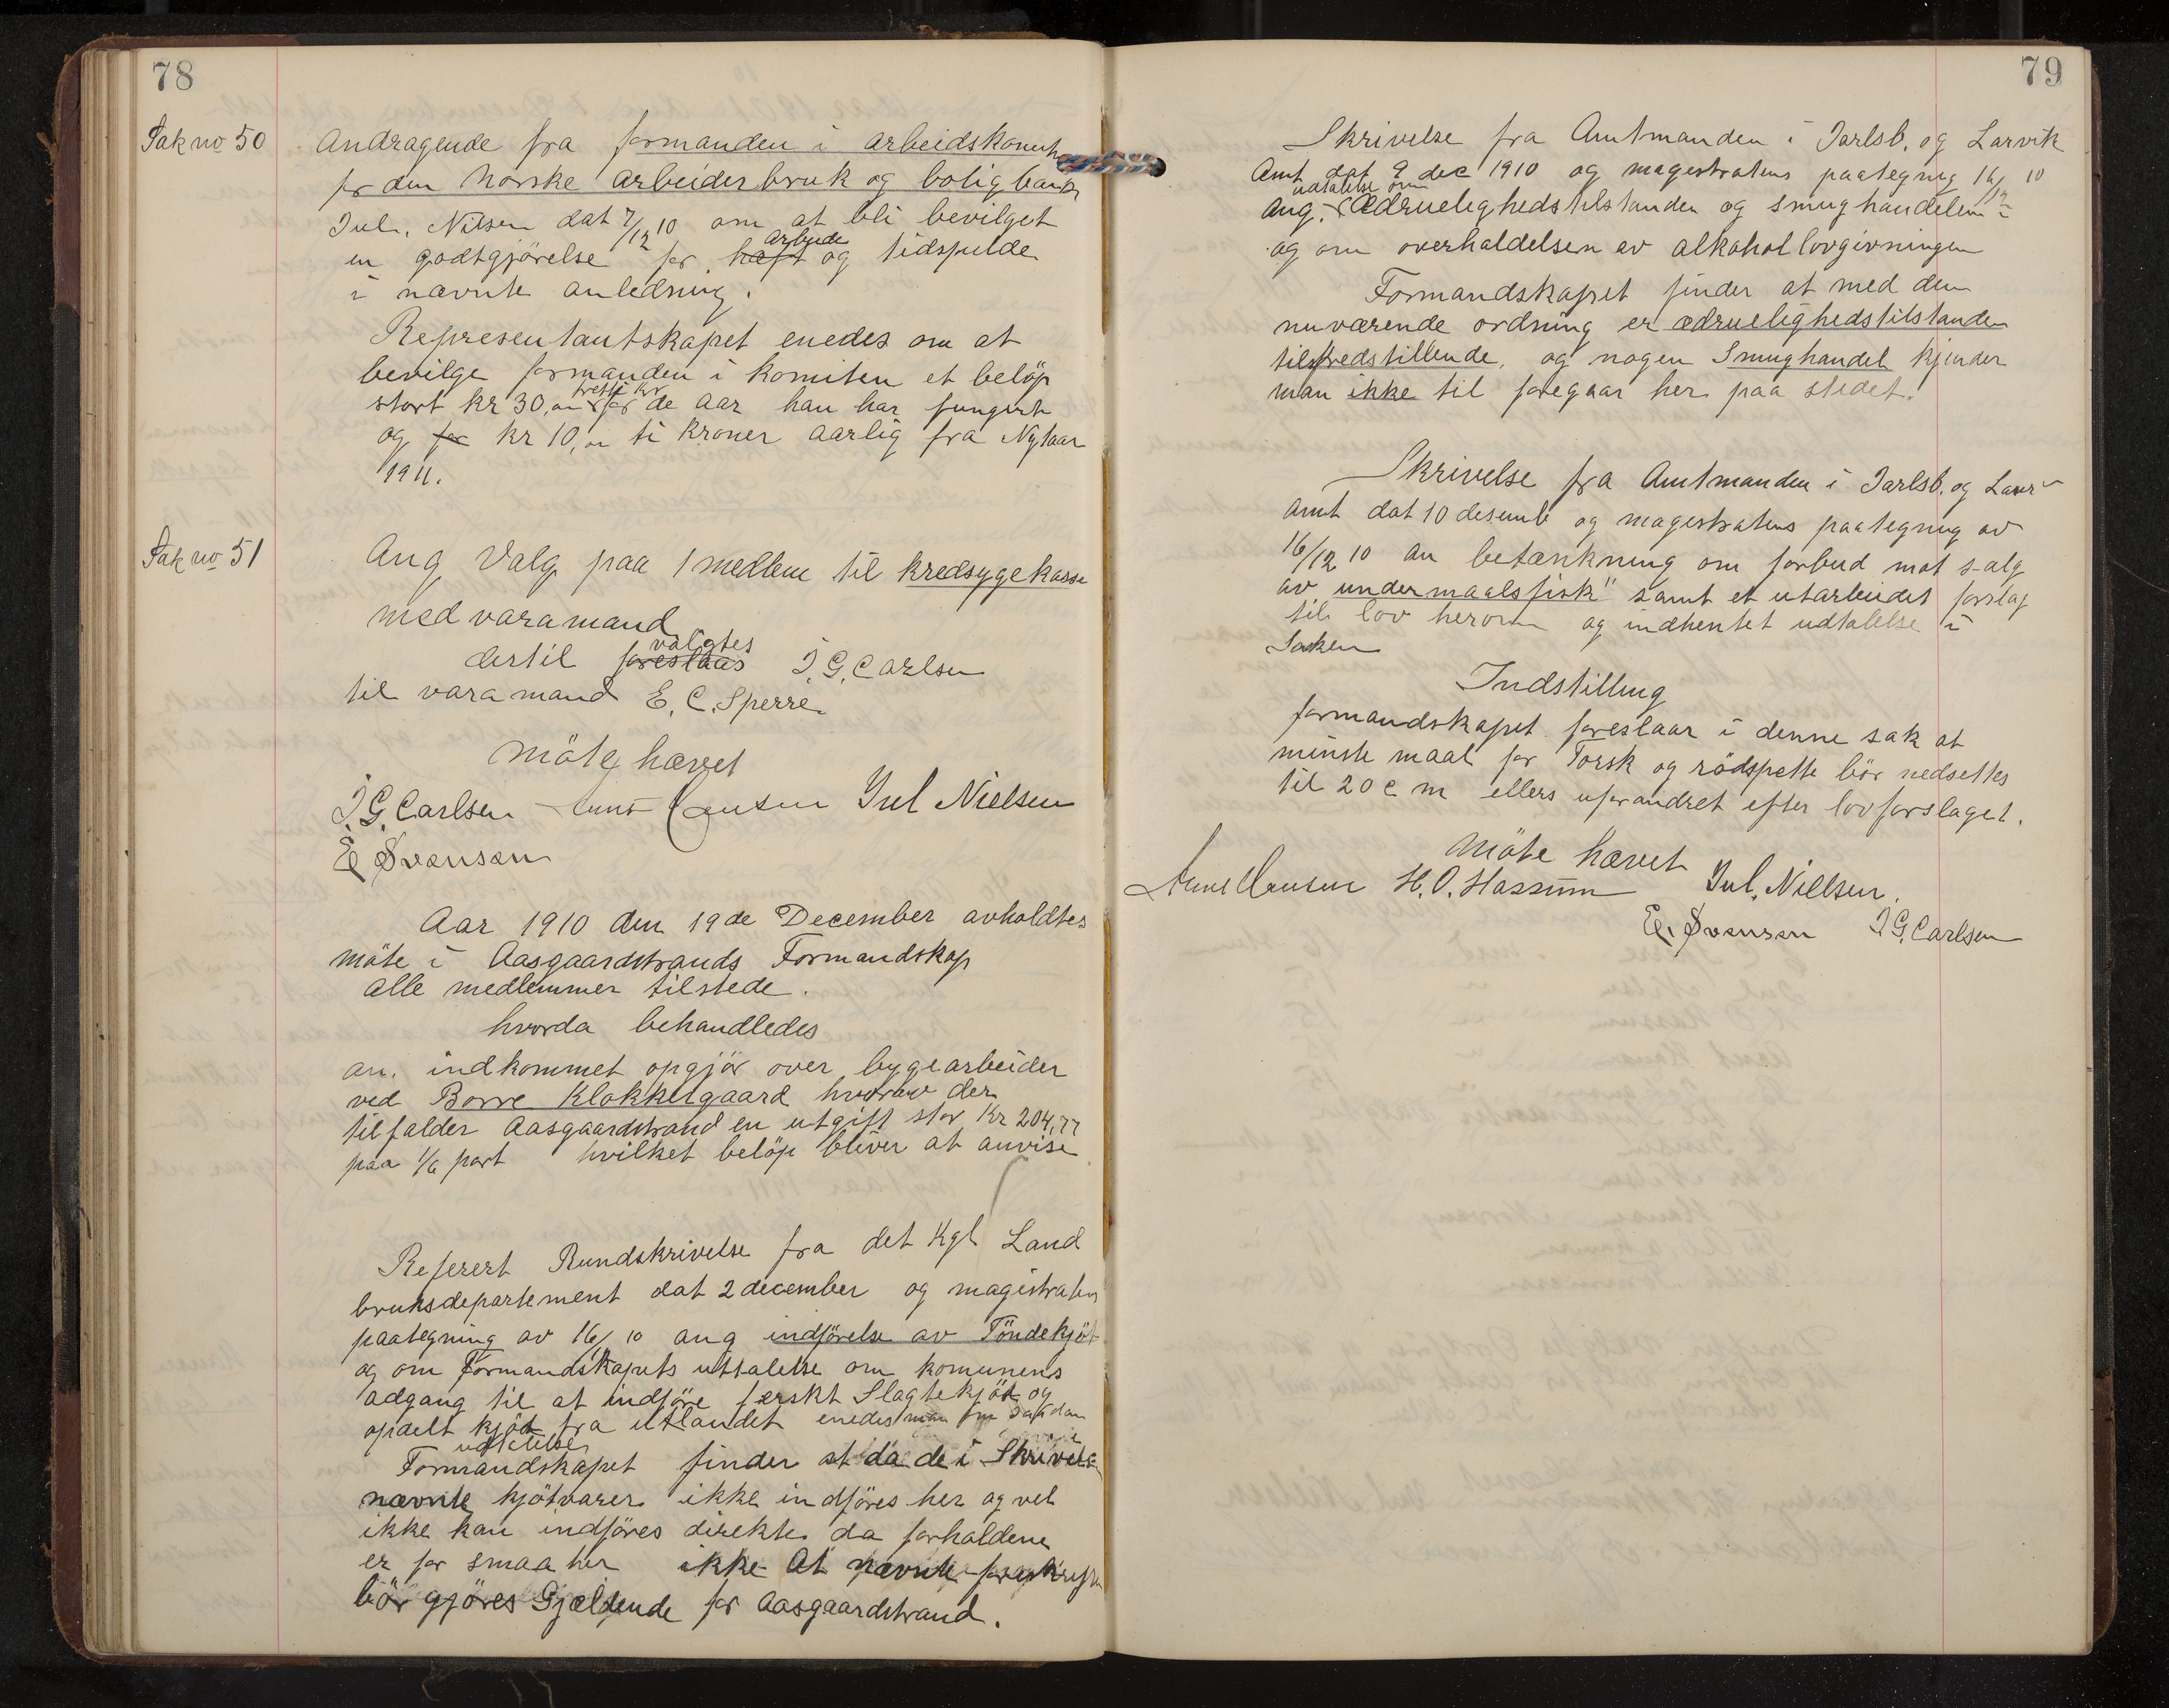 78
Sak no 50
Andragende fra formanden i arbeidskomite
for den Norske arbeiderbruk og boligbank
Jul. Nilsen dat 7/12 10 om at bli bevilget
en godtgjörelse for haft arbeide og tidspilde
i nævnte anledning.
Representantskapet enedes om at
bevilge formanden i komiteen et belöp
stort kr 30, tretti kr for de aar han har fungert
og for kr 10, ti kroner aarlig fra Nytaar
1911.
Sak no 51
Ang Valg paa 1 medlem til kredsygekasse
med varamand
dertil foreslaas valgtes J. G. Carlsen
til varamand E. C. Sperre.
Möte hævet
J. G. Carlsen Hansen Jul Nielsen
E Svensen
Aar 1910 den 19de December avholdtes
möte i Aasgaardstrands Formandskap
alle medlemmer tilstede.
hvorda behandledes
an. indkommet opgjör over bygearbeider
ved Borre Klokkergaard hvorav der
tilfalder Aasgaardstrand en utgift stor Kr 204,77
paa 1/6 part hvilket belöp bliver at anvise
Referert Rundskrivelse fra det Kgl Land
bruksdepartement dat 2 december og magistratens
paategning av 16/12 10 ang indförelse av Töndekjöt
og om Formandskapets uttalelse om komunens
adgang til at indföre ferskt Slagtekjöt og
opdelt kjöt fra utlandet enedes man om saadan
udtalelse
Formandskapet finder at da de i Skrivelse
nævnte kjötvarer ikke indföres her og vel
ikke kan indföres direkte da forholdene
er for smaa her ikke At nævnte forskrifter
bör gjöres Gjeldende for Aasgaardstrand.
79
Skrivelse fra Amtmanden i Jarlsb. og Larvik
Amt dat 9 dec 1910 og magestratens paategnig 16/12 10
ang. udtalelse om Ædruelighedstilstanden og smughandelen
og om overholdelsen av alkohollovgivningen
Formandskapet finder at med den
nuværende ordning er ædruelighedstilstanden
tilfredstillende, og nogen Smughandel kjender
man ikke til foregaar her paa stedet.
Skrivelse fra Amtmanden i Jarlsb. og Larv
amt dat 10 desemb og magestratens paategnig av
16/12 10 an betænkning om forbud mot salg
av "undermaalsfisk" samt et utarbeidet forslag
til lov herom og indhentet udtalelse i
Saken
Indstilling
formandskapet foreslaar i denne sak at
minste maal for Torsk og rödspette bör nedsettes
til 20 c m ellers uforandret efter lovforslaget.
Möte hævet
Hansen H. O. Hassum Jul. Nielsen.
E. Svensen J G. Carlsen